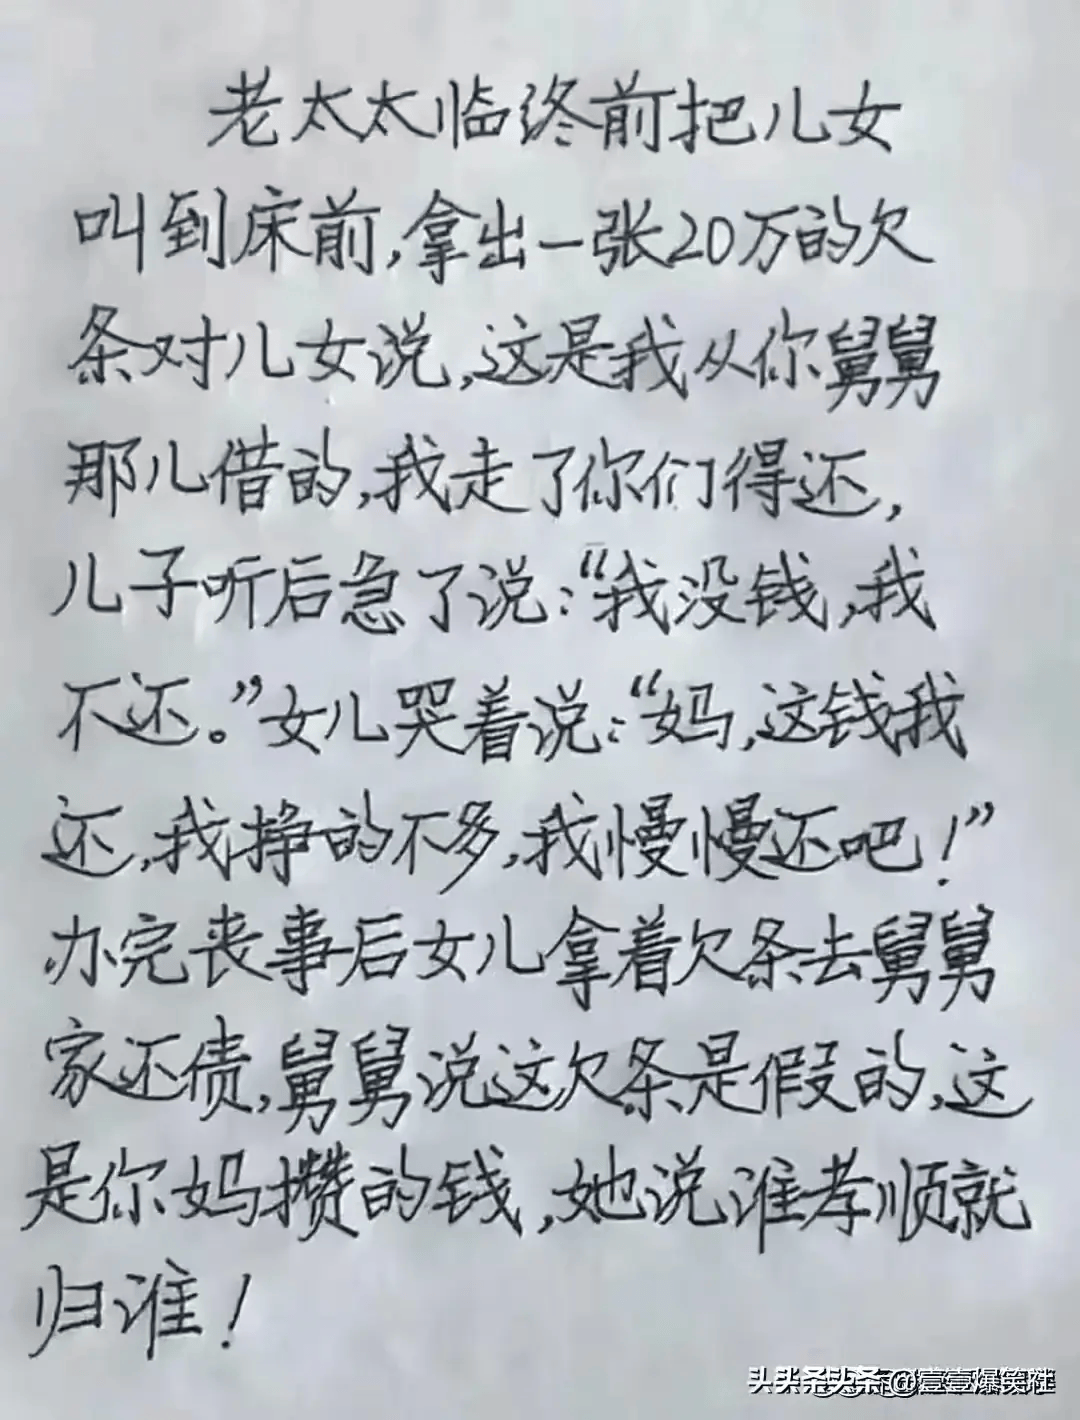 老太太临终前把儿女
叫到床前,拿出一张20万的欠
条对儿女说,这是我从你舅舅
那儿借的,我走了你们得还,
儿子听后急了说:“我没钱,我
不还。”女儿哭着说:“妈,这钱我
还,我挣的不多,我慢慢还吧!”
办完丧事后女儿拿着欠条去舅舅
家还债,舅舅说这欠条是假的,这
是你妈攒的钱,她说谁孝顺就
归谁!
头条 @壹壹爆笑